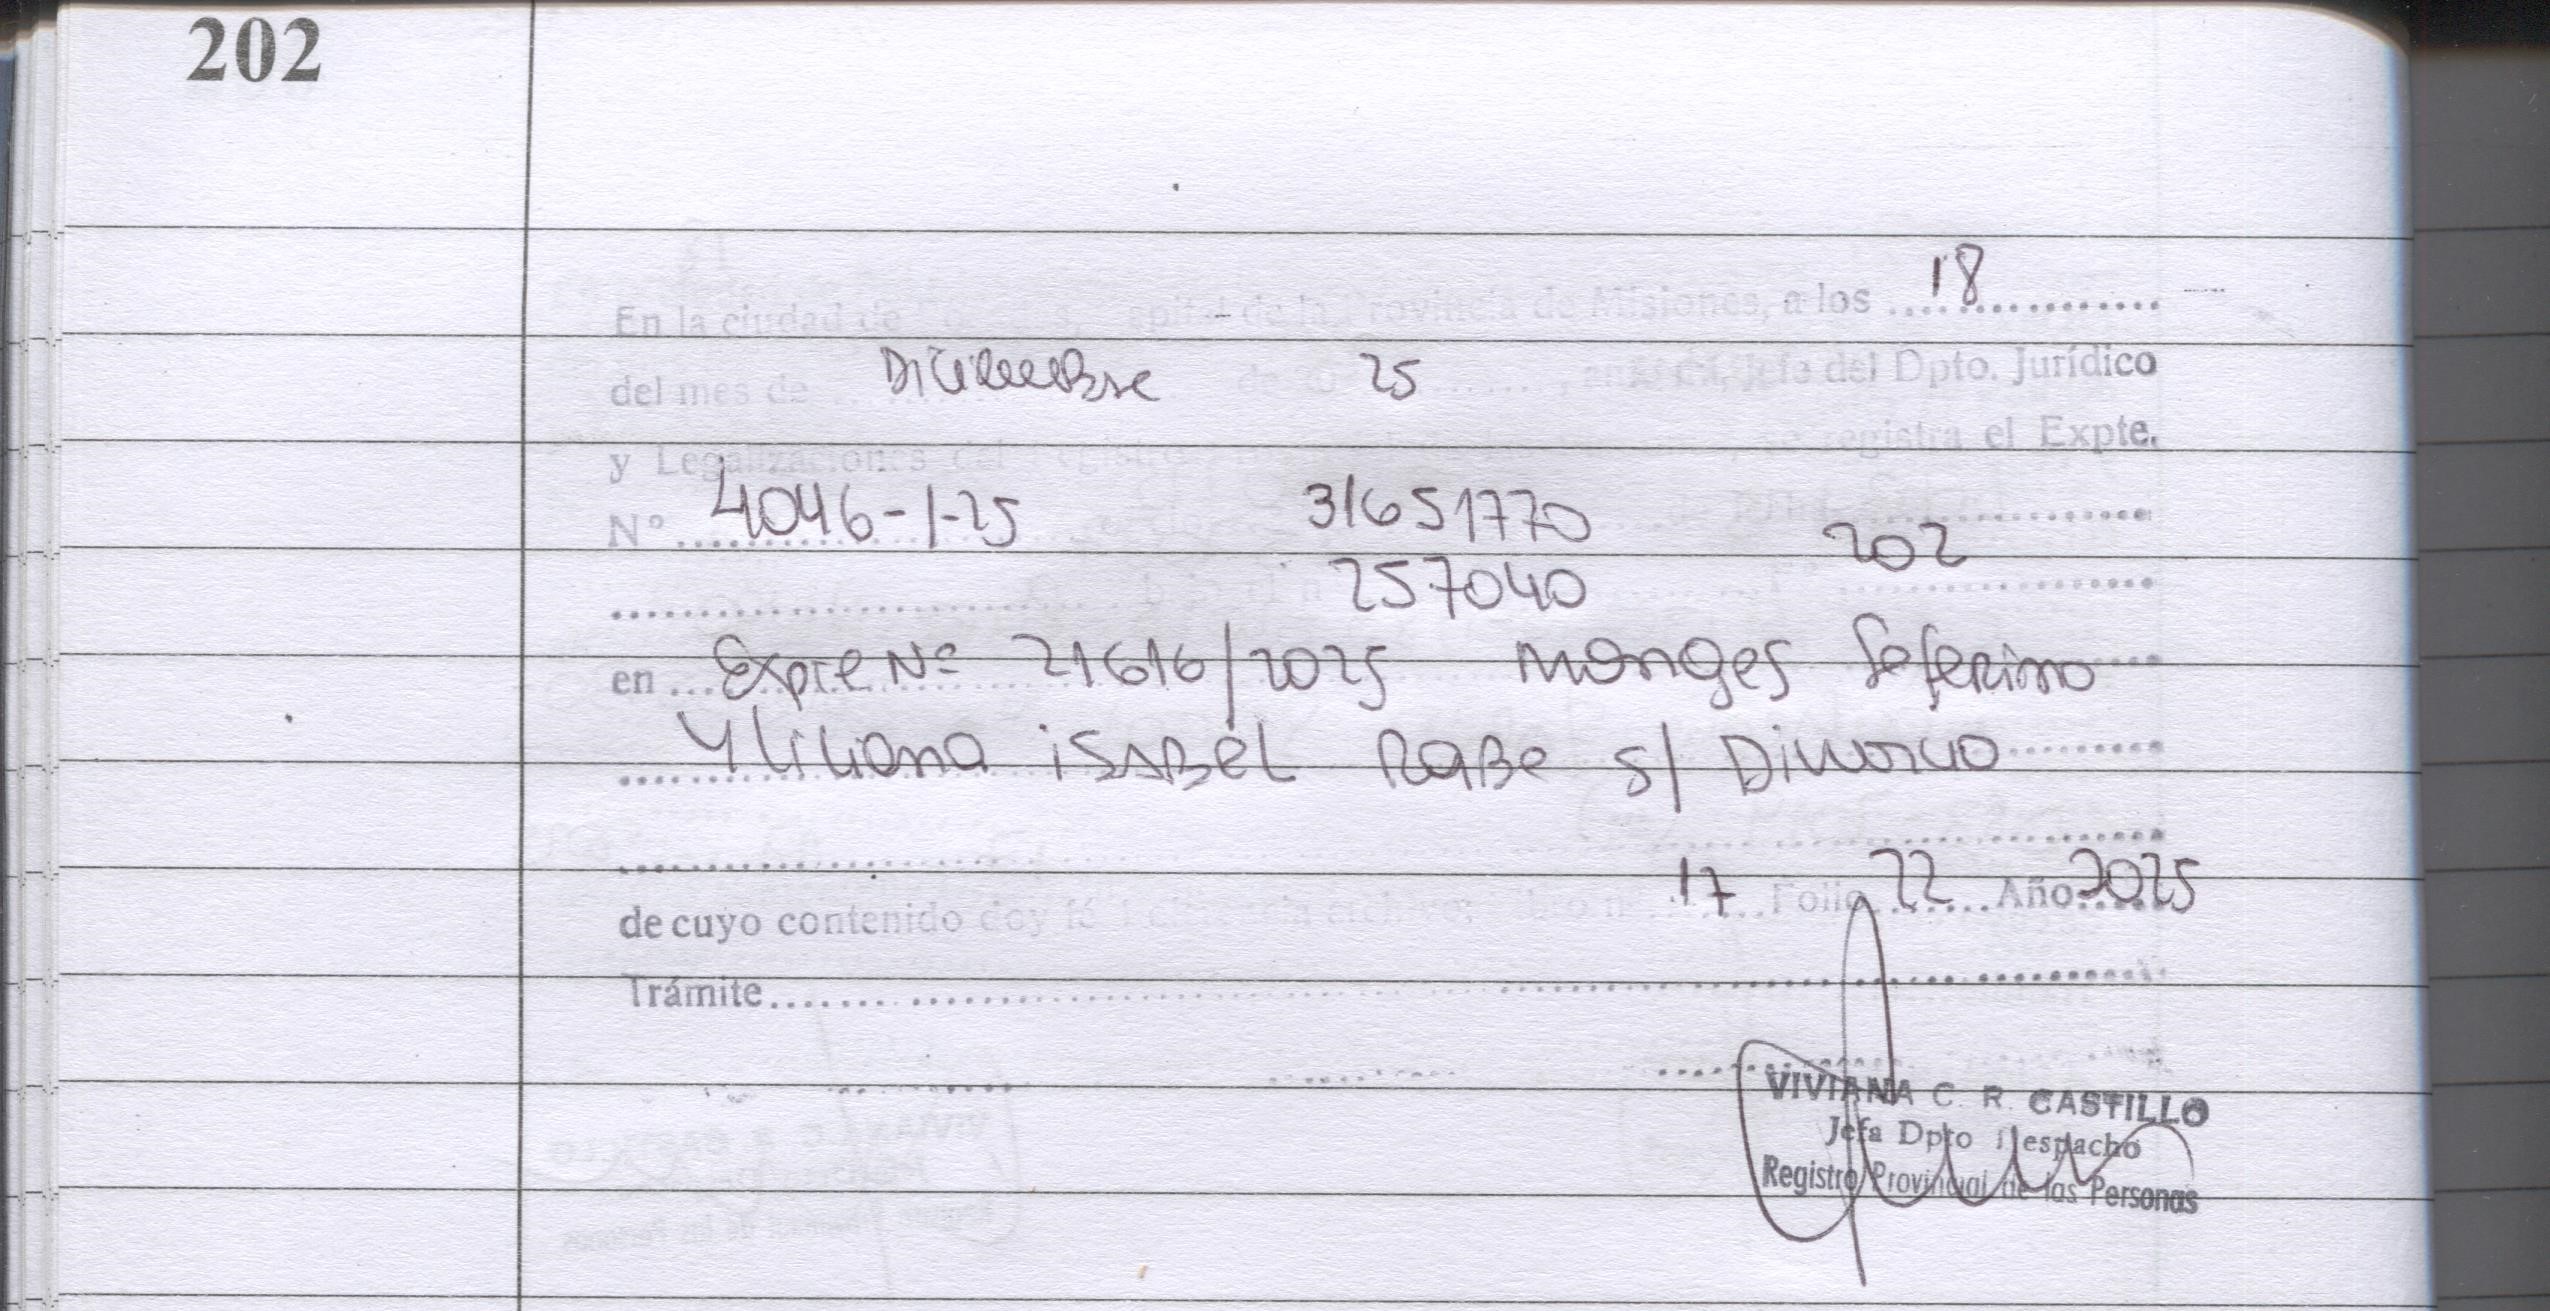 202
En la ciudad de Capital de la Provincia de Misiones, a los 18
del mes de Diciembre de 20 25, ante mí, Jefe del Dpto. Jurídico
y Legalizaciones del Registro se registra el Expte.
Nº 4046-1-25 31651770
257040 202
en Expte Nº 21616/2025 Monges Seferino
Y liliana iSABEL RABE s/ Divorcio
de cuyo contenido doy fé 17 Folio 22 Año 2025
Trámite
VIVIANA C. R. CASTILLO
Jefa Dpto Despacho
Registro Provincial de las Personas